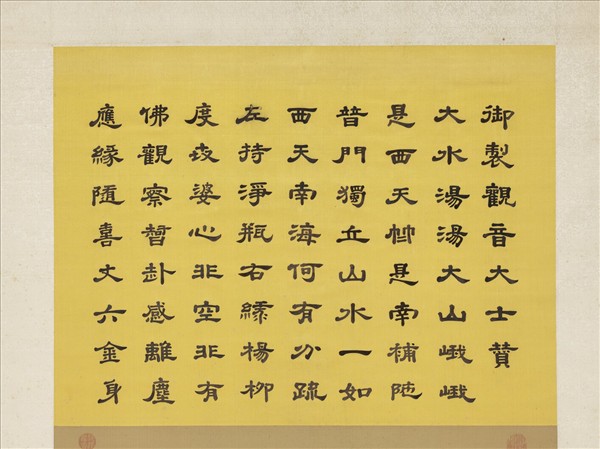 御製觀音大士贊
大水湯湯大山峨峨
是西天是南補陁
普門獨立山水一如
西天南海何有分疏
左持淨瓶右楊柳
度婆心非空非有
佛觀察智卦感離塵
應緣隨喜丈六金身